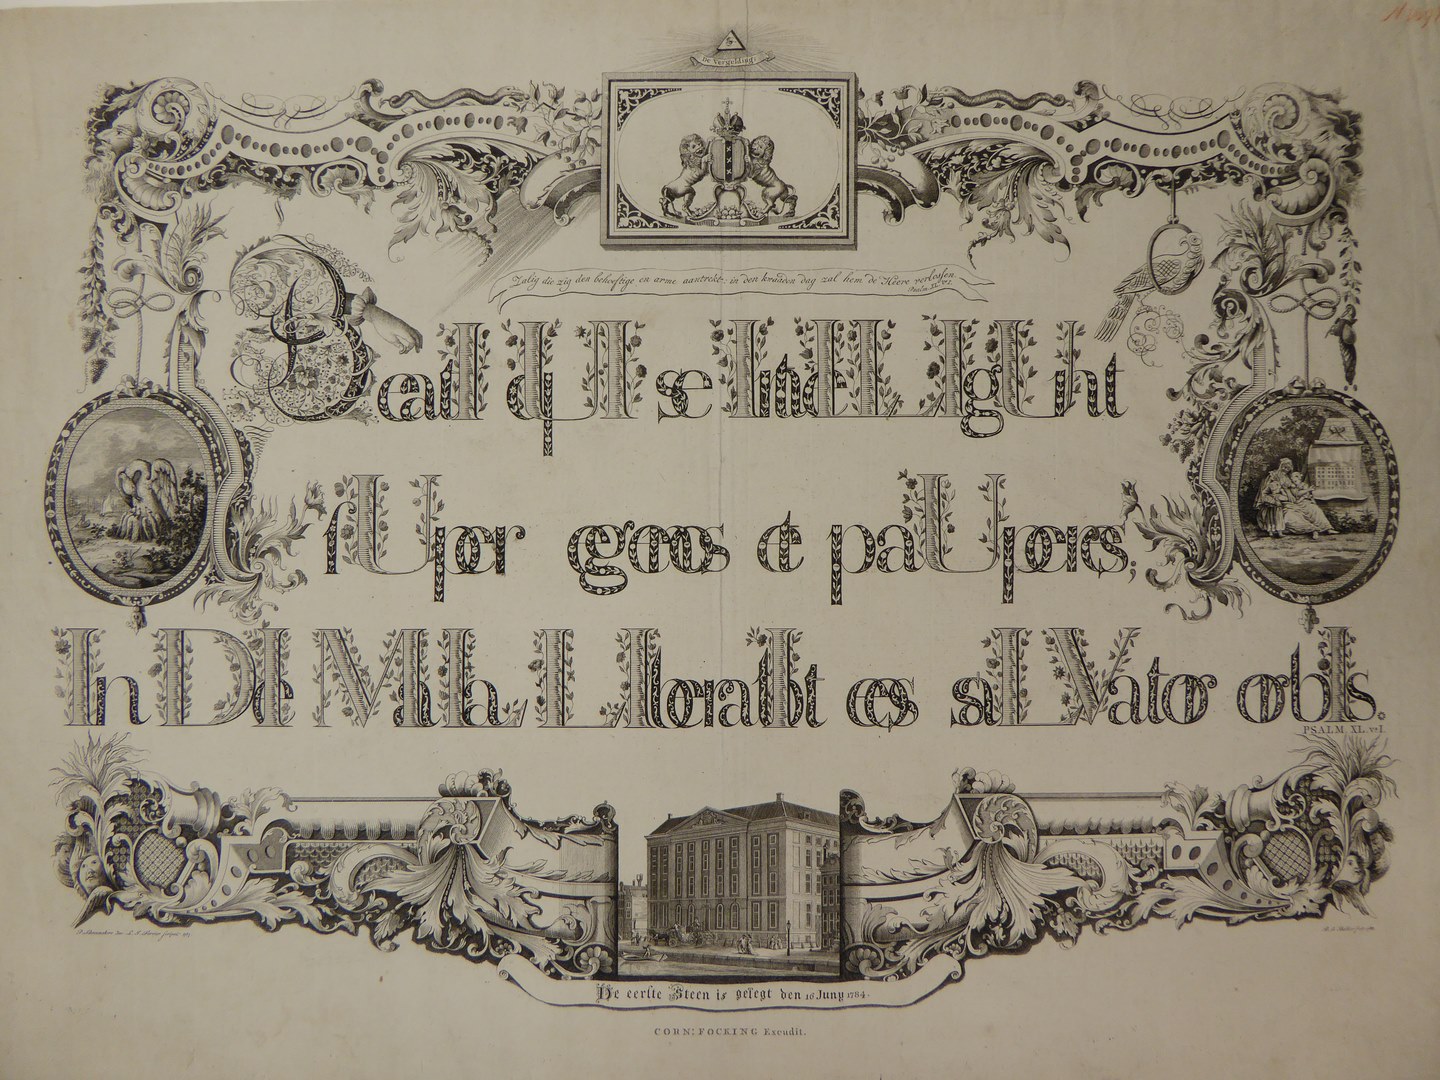 De Vergelding.
Zalig die zig den behoeftige en arme aantrekt, in den kwaaden dag zal hem de Heere verlossen.
Psalm XL. v. I.
BeatI qUI se InteLLIgUnt
sUper egenos et paUperes;
In DIe MaLa LIberabIt eos saLVator orbIs.
PSALM. XL. v. I.
De eerste Steen is gelegt den 16 Juny 1784.
CORN: FOCKING Excudit.